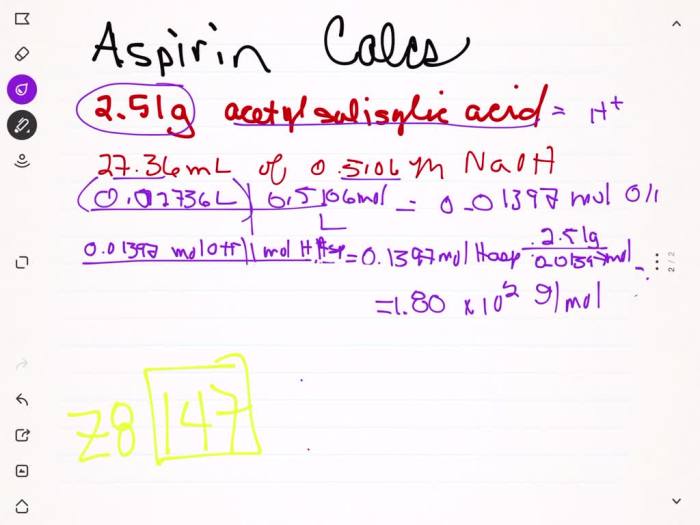 Aspirin Calcs
2.51g acetylsalisylic acid = H+
27.36mL of 0.5106 M NaOH
0.02736L | 0.5106mol = 0.01397 mol OH
L
0.01397 mol OH | 1 mol HAsp = 0.1397 mol Hasp 2.51g
0.01397mol
=1.80 x 10² g/mol
Z8 147
2/2